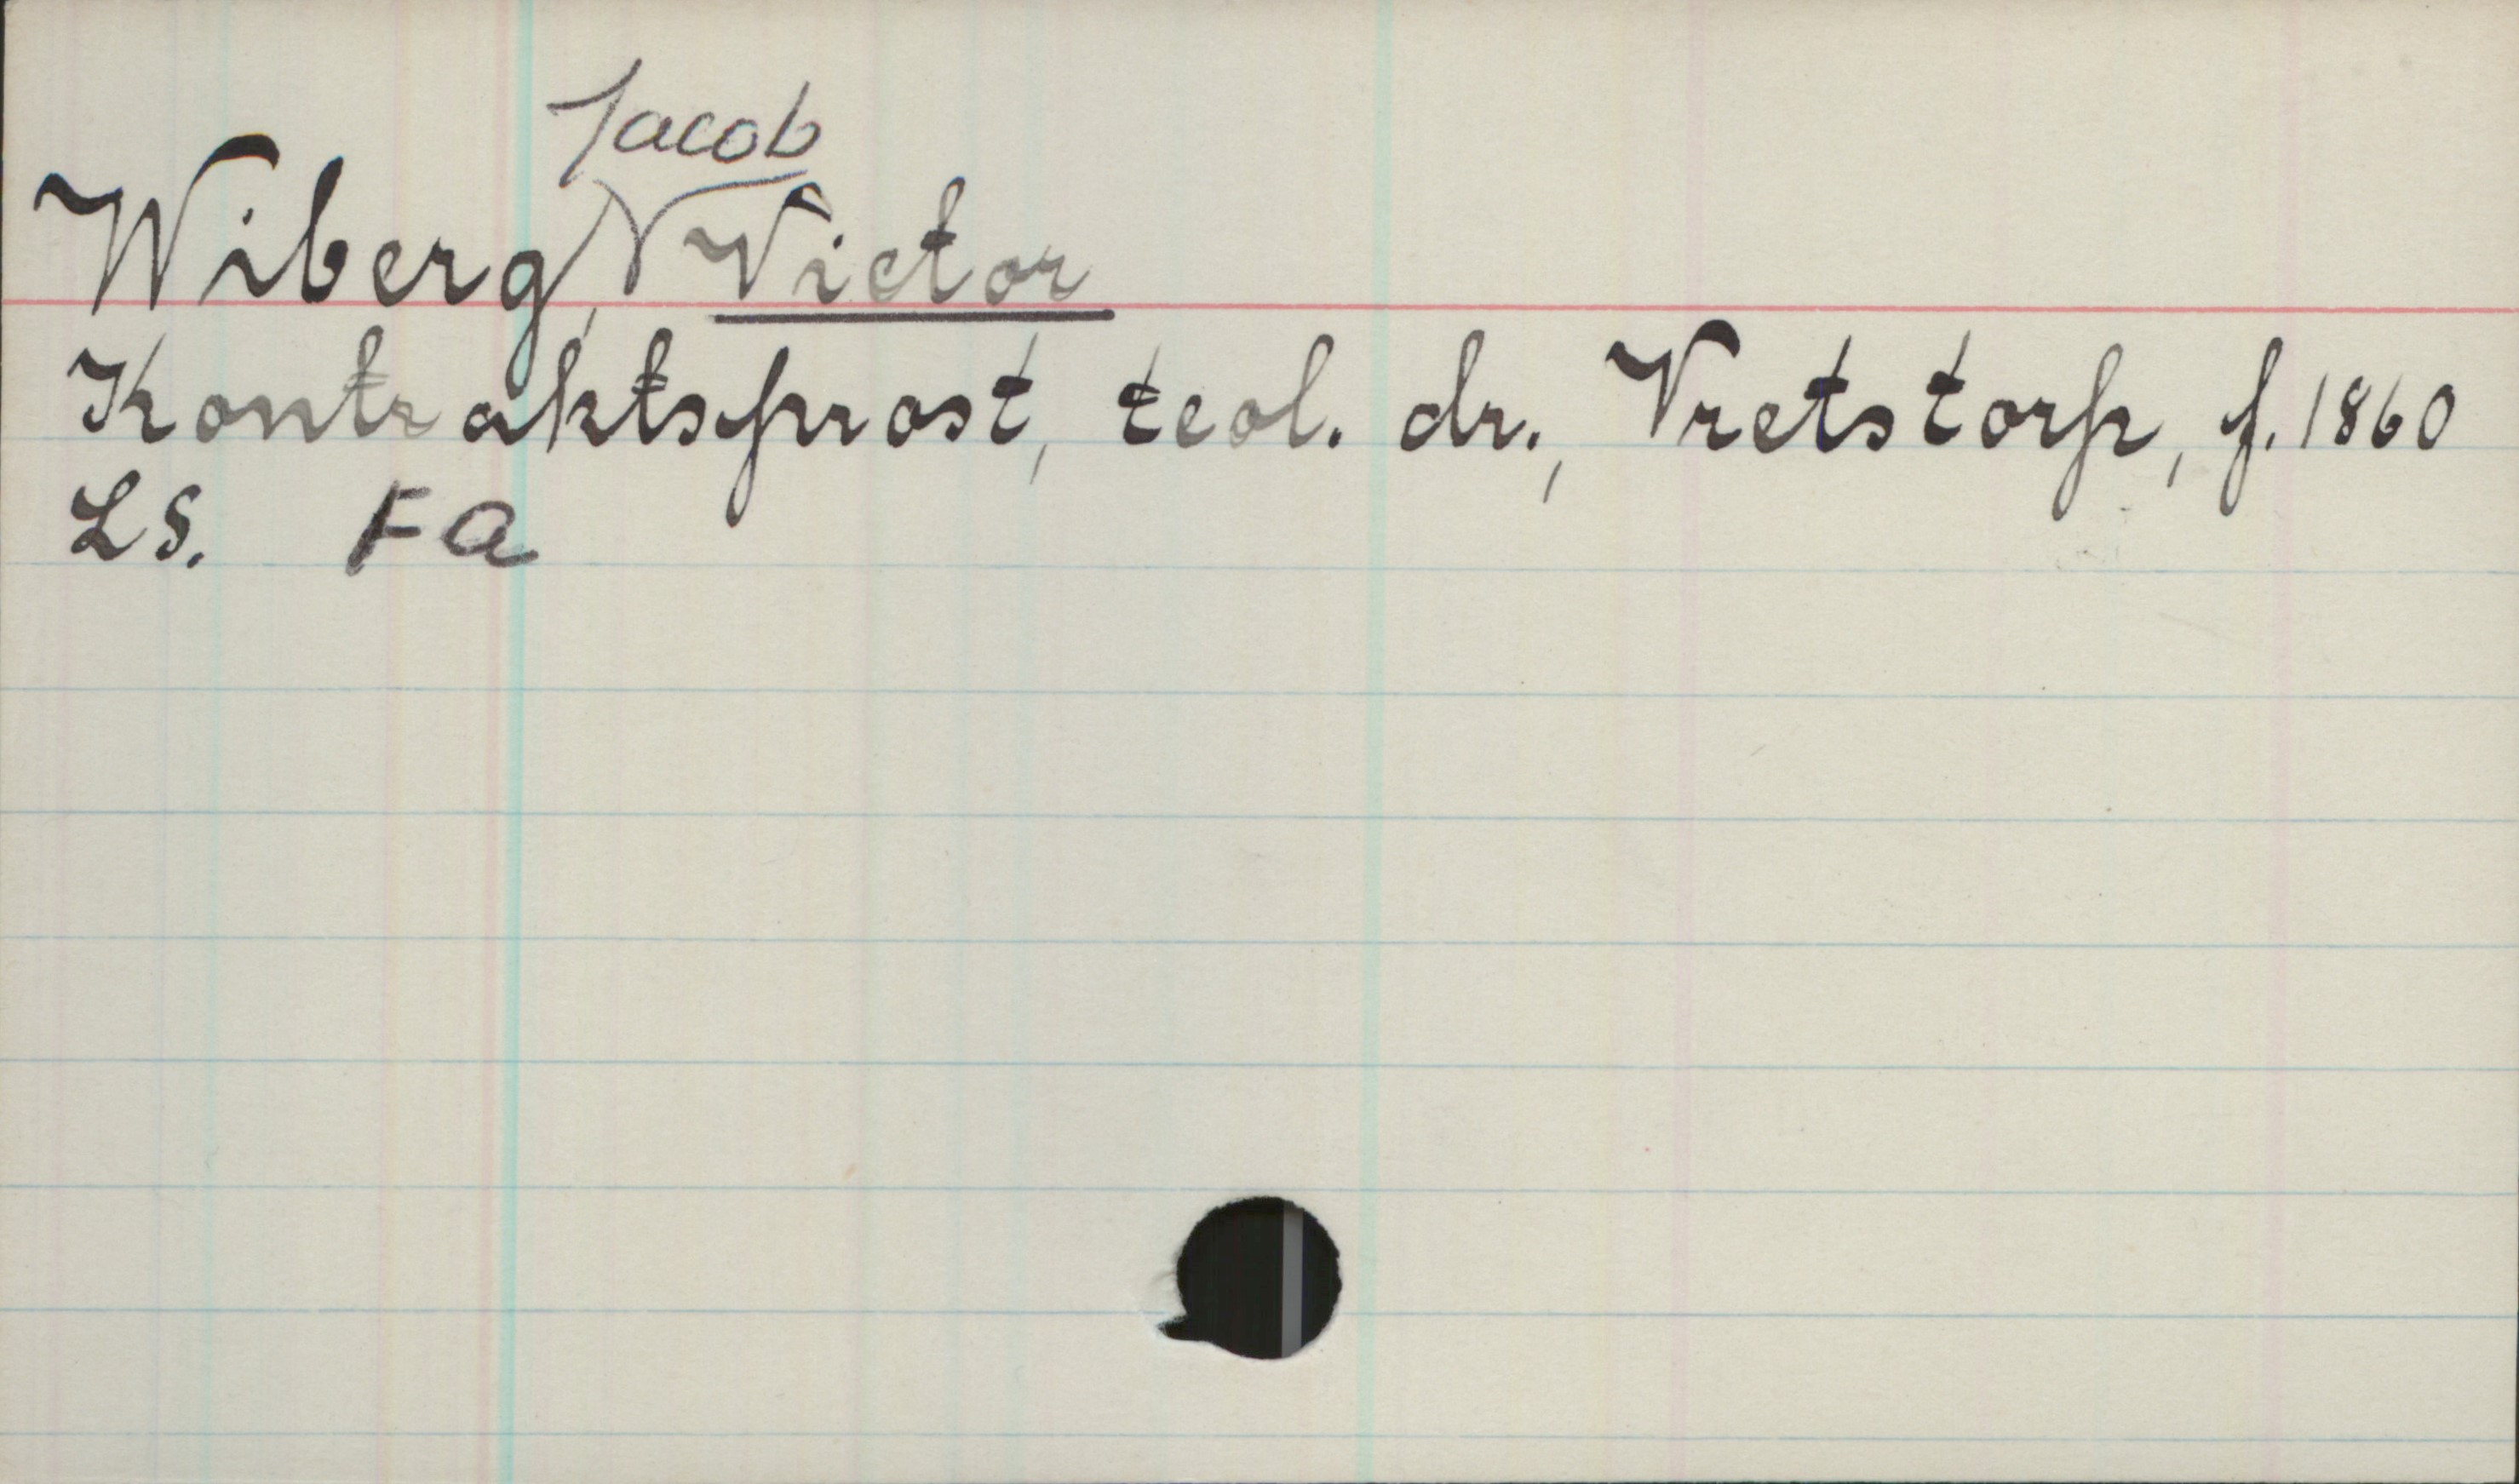 Jacob
Wiberg, Victor
Kontraktsprost, teol. dr., Vretstorp, f. 1860
LS. Fa